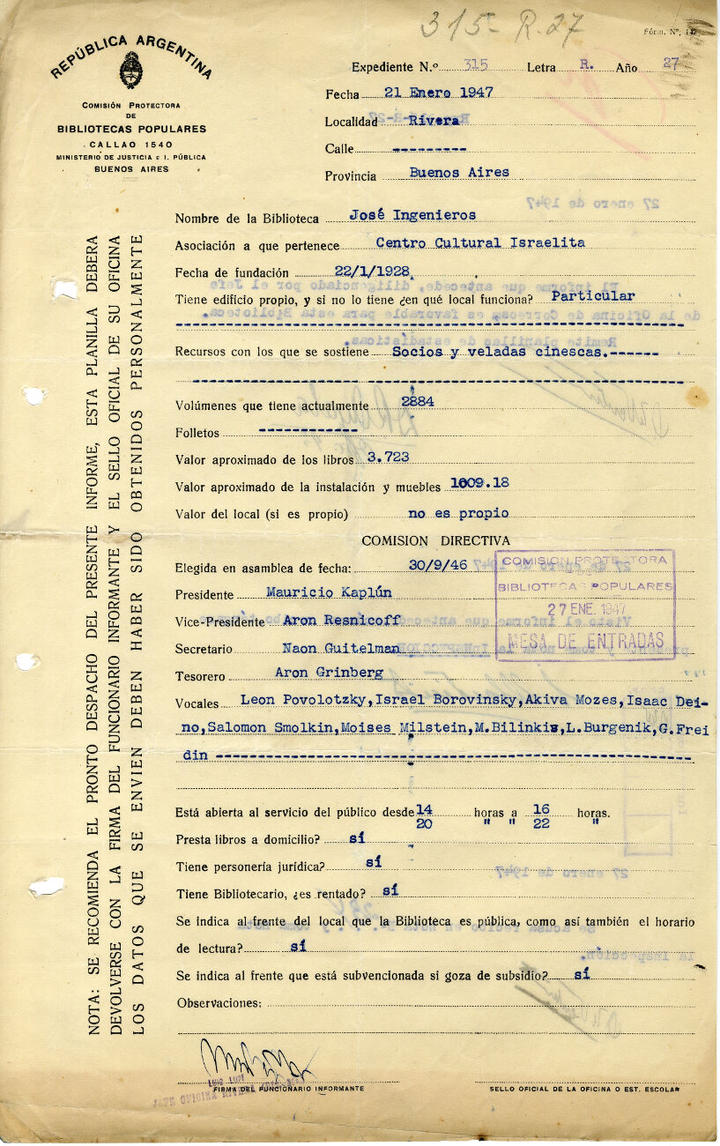 315- R.27
Fórm. Nº.
REPÚBLICA ARGENTINA
COMISIÓN PROTECTORA
DE
BIBLIOTECAS POPULARES
CALLAO 1540
MINISTERIO DE JUSTICIA E I. PÚBLICA
BUENOS AIRES
Expediente N.º 315 Letra R. Año 27
Fecha 21 Enero 1947
Localidad Rivera
Calle ---------
Provincia Buenos Aires
Nombre de la Biblioteca José Ingenieros
Asociación a que pertenece Centro Cultural Israelita
Fecha de fundación 22/1/1928.
Tiene edificio propio, y si no lo tiene ¿en qué local funciona? Particular
Recursos con los que se sostiene Socios y veladas cinescas.------
Volúmenes que tiene actualmente 2884
Folletos ------------
Valor aproximado de los libros 3.723
Valor aproximado de la instalación y muebles 1009.18
Valor del local (si es propio) no es propio
COMISION DIRECTIVA
Elegida en asamblea de fecha: 30/9/46
Presidente Mauricio Kaplún
Vice-Presidente Aron Resnicoff
Secretario Naon Guitelman
Tesorero Aron Grinberg
Vocales Leon Povolotzky,Israel Borovinsky,Akiva Mozes,Isaac Dei-
no,Salomon Smolkin,Moises Milstein,M.Bilinkis,L.Burgenik,G.Frei
din
COMISION PROTECTORA
BIBLIOTECAS POPULARES
27 ENE. 1947
MESA DE ENTRADAS
Está abierta al servicio del público desde 14 horas a 16 horas.
20 " " 22 "
Presta libros a domicilio? sí
Tiene personería jurídica? sí
Tiene Bibliotecario, ¿es rentado? sí
Se indica al frente del local que la Biblioteca es pública, como así también el horario
de lectura? sí
Se indica al frente que está subvencionada si goza de subsidio? sí
Observaciones:
FIRMA DEL FUNCIONARIO INFORMANTE
JEFE OFICINA RIVERA
SELLO OFICIAL DE LA OFICINA O EST. ESCOLAR
NOTA: SE RECOMIENDA EL PRONTO DESPACHO DEL PRESENTE INFORME, ESTA PLANILLA DEBERA
DEVOLVERSE CON LA FIRMA DEL FUNCIONARIO INFORMANTE Y EL SELLO OFICIAL DE SU OFICINA
LOS DATOS QUE SE ENVIEN DEBEN HABER SIDO OBTENIDOS PERSONALMENTE